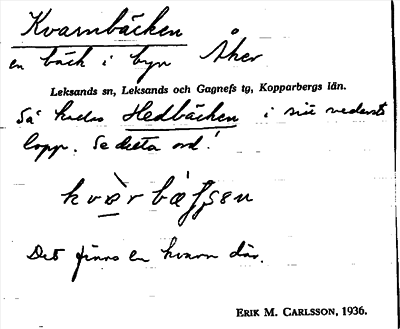 Kvarnbäcken
en bäck i byn Åker
Leksands sn, Leksands och Gagnefs tg, Kopparbergs län.
Så kallas Hedbäcken i sitt nedersta
lopp. Se detta ord!
Det finns en kvarn där.
ERIK M. CARLSSON, 1936.